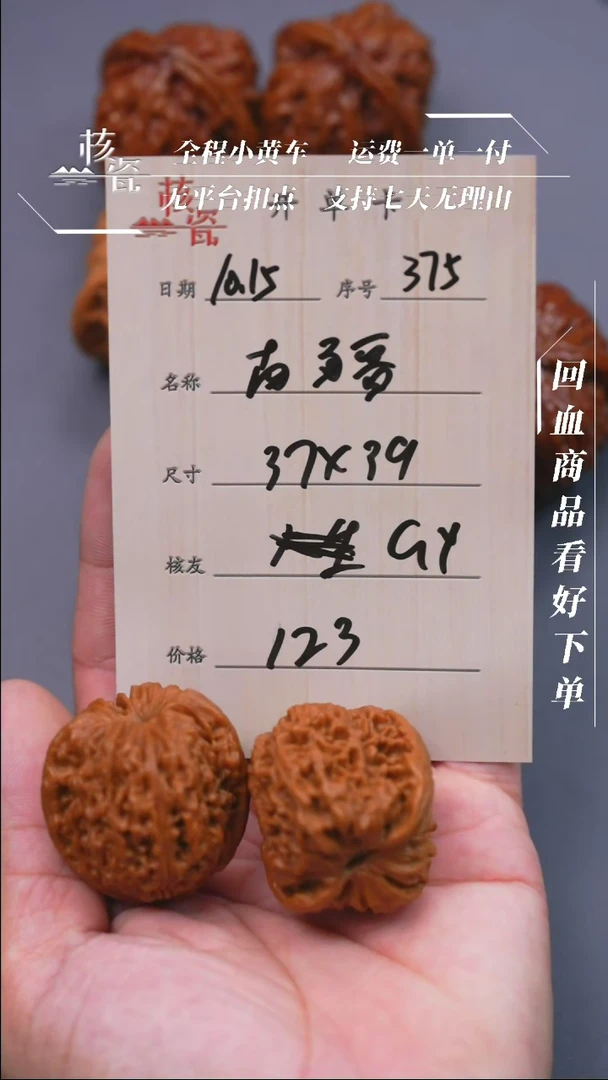 核瓷
全程小黄车 运费一单一付
无平台扣点 支持七天无理由
核瓷
开单卡
日期 10.15 序号 375
名称 南疆
尺寸 37X39
核友 GY
价格 123
回血商品看好下单